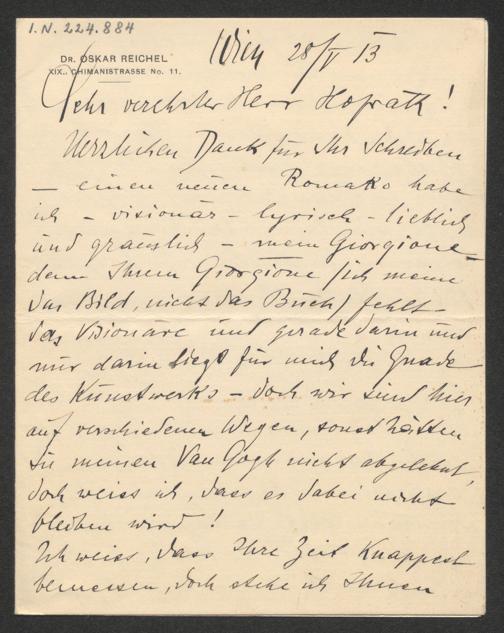 I.N. 224.884
DR. OSKAR REICHEL
XIX., CHIMANISTRASSE No. 11.
Wien 28/V 13
Sehr verehrter Herr Hofrath!
Herzlichen Dank für Ihr Schreiben
– einen neuen Romako habe
ich – visionär – lyrisch – lieblich
und gräuslich – mein Giorgione –
denn Ihrem Giorgione (ich meine
das Bild, nicht das Buch) fehlt
das Visionäre und gerade darin und
nur darin liegt für mich die Gnade
des Kunstwerks – doch wir sind hier
auf verschiedenen Wegen, sonst hätten
Sie meinen Van Gogh nicht abgelehnt,
doch weiss ich, dass es dabei nicht
bleiben wird!
Ich weiss, dass Ihre Zeit Knappest
bemessen, doch stehe ich Ihnen